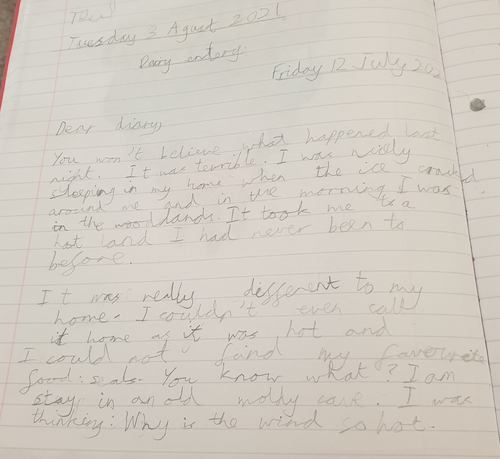 Tuesday 3 Agust 2021
Diary entery
Friday 12 July, 202
Dear diary,
You won't believe what happened last
night. It was terrible. I was nicely
sleeping in my home when the ice cracked
around me and in the morning I was
in the woodlands. It took me to a
hot land I had never been to
before.
It was really different to my
home. I couldn't even call
it home as it was hot and
I could not find my favowrite
food: seals. You know what? I am
stay in an old moldy cave. I was
thinking: Why is the wind so hot.